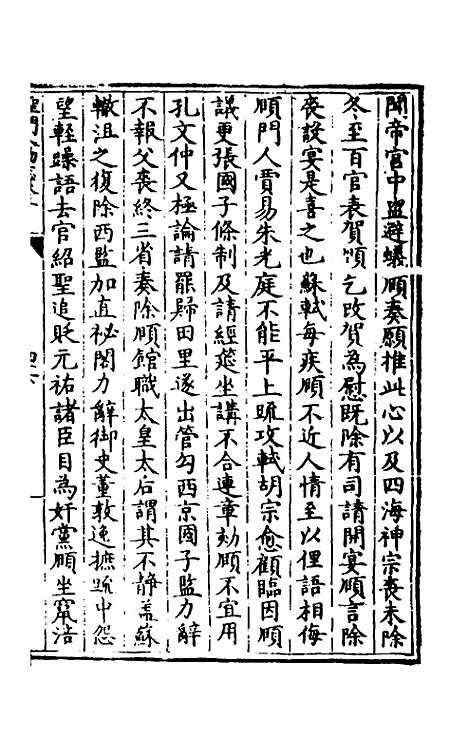 聞帝宮中盥避螘頤奏願推此心以及四海神宗喪未除
冬至百官表賀頤乞改賀為慰既除有司請開宴頤言除
喪設宴是喜之也蘇軾每疾頤不近人情至以俚語相侮
頤門人賈易朱光庭不能平上疏攻軾胡宗愈顧臨因頤
議更張國子條制及請經筵坐講不合連章劾頤不宜用
孔文仲又極論請罷歸田里遂出管勾西京國子監力辭
不報父喪終三省奏除頤館職太皇太后謂其不靜蓋蘇
轍沮之復除西監加直祕閣力辭御史董敦逸摭疏中怨
望輕躁語去官紹聖追貶元祐諸臣目為奸黨頤坐竄涪